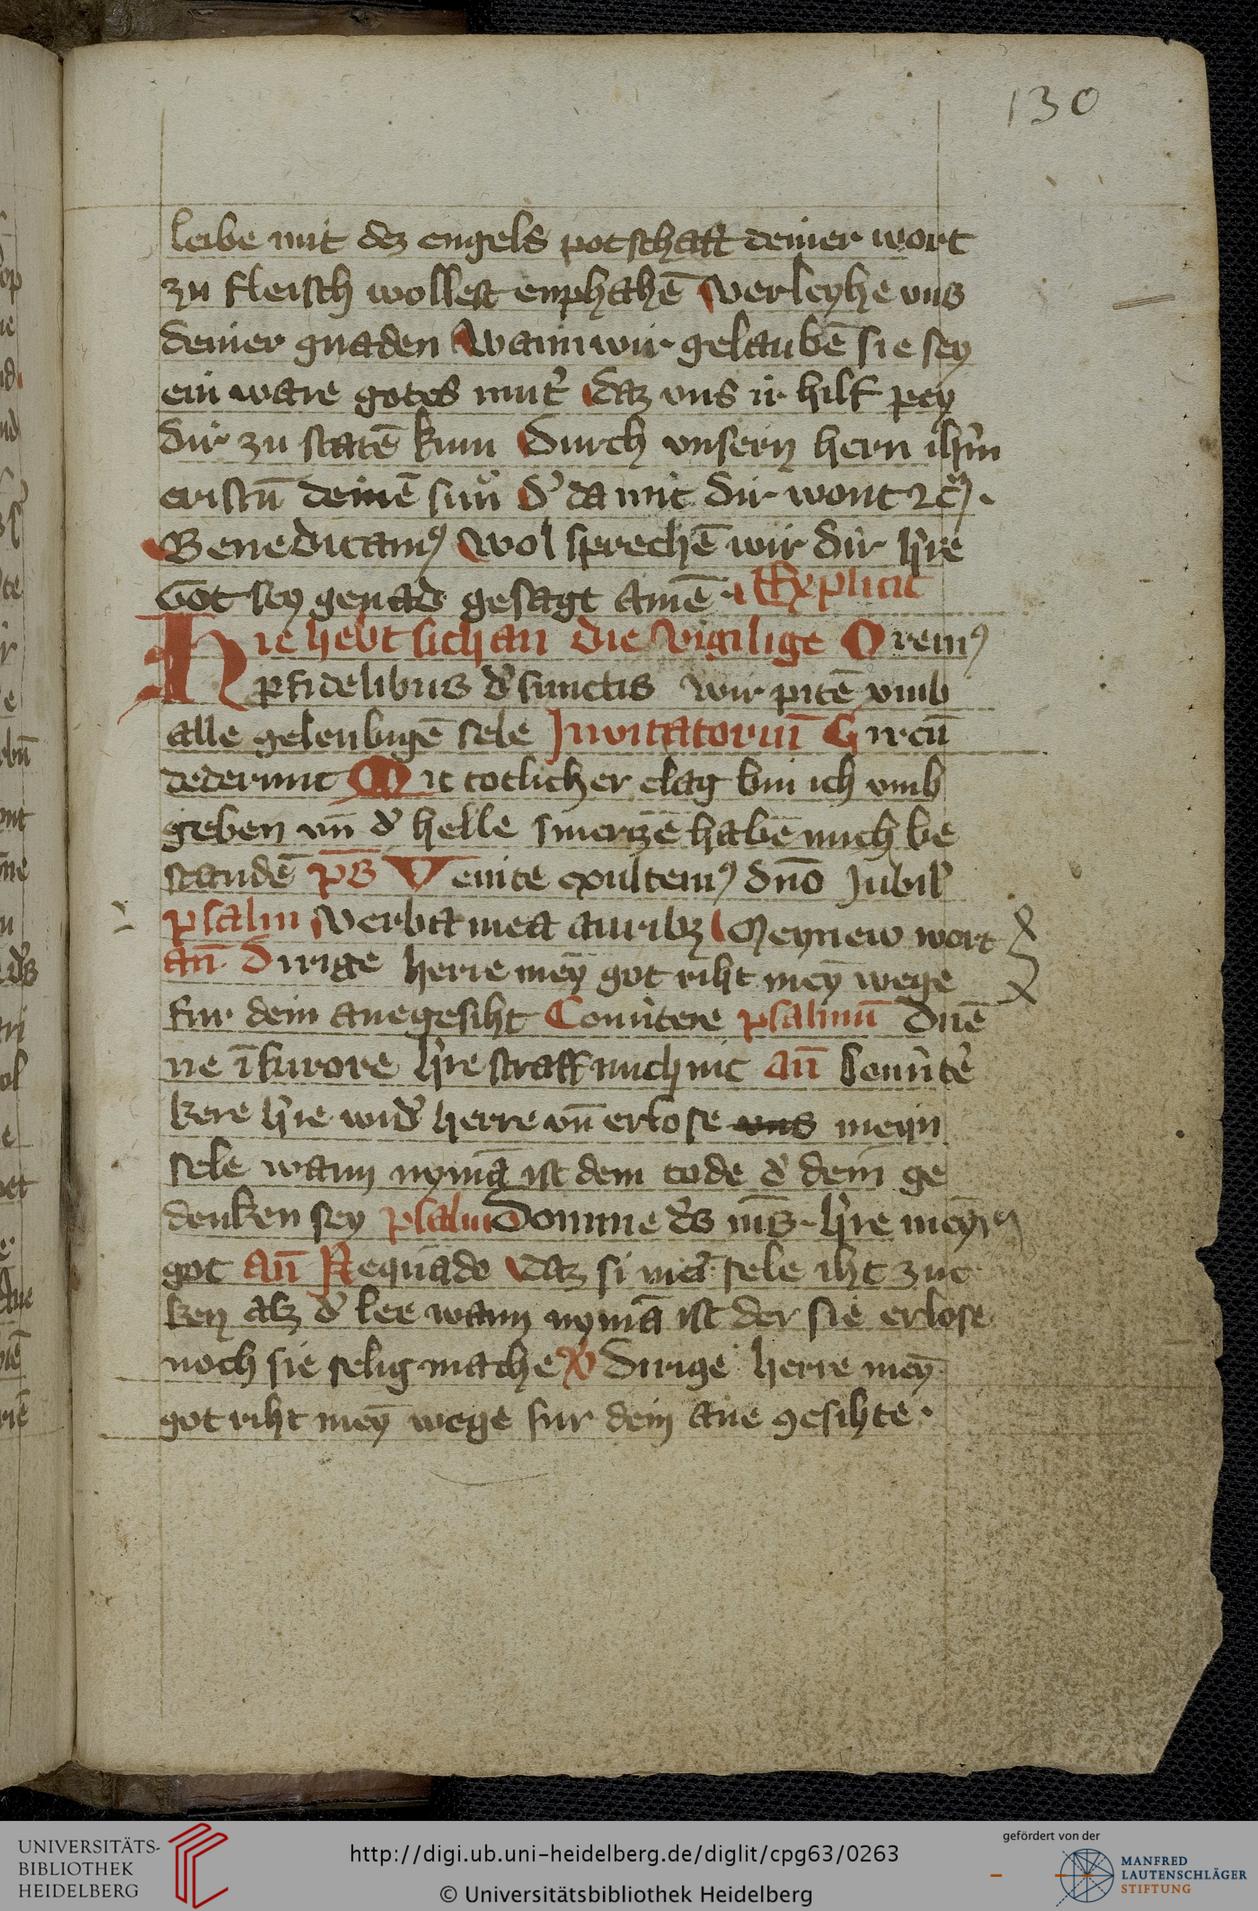 130
leibe mit dez engels potschafft deiner wort
zu fleisch wollest enphahē verleyhe vns
deiner gnaden wann wir gelaubē sie sey
ein ware gotes mut̉ daz vns ir hilf pey
dir zu statē kum Durch vnsern hern ih̄m
cristū deinē sun d̉ da mit dir wont
Benedicamꝰ wol sprechē wir dir h̉re
Got sey genad gesagt amē Explicit
Hie hebt sich an die vigilige Oremꝰ
p fidelibus d̉functis wir pitē vmb
alle geleubigē sele Invitatoriū Circū
dederunt Mit totlicher clag bin ich vmb
geben vn̄ d̉ helle smerczē habē mich be
standē p̄s Venite exultemꝰ dn̄o Jubil̉
psalm Verba mea auribꝫ Meynew wort
an̄ Dirige herre meȳ got riht meȳ wege
fur dein anegesiht Conūtere psalmū Dn̄e
ne ī furore h̉re straff mich nit an̄ Conūtẻ
kere h̉re wid̉ herre vn̄ erlose vns meyn
sele wann nymā ist dem tode d̉ dein ge
denken sey psalm Domine d̄s m̄s h̉re meȳ
got an̄ Nequādo daz si mein sele iht zuc
ken alz d̉ lee wann nymā ist der sie erlose
noch sie selig mache Dirige herre meȳ
got riht meȳ wege fur dein ane gesihte
UNIVERSITÄTS-
BIBLIOTHEK
HEIDELBERG
http://digi.ub.uni-heidelberg.de/diglit/cpg63/0263
© Universitätsbibliothek Heidelberg
gefördert von der
MANFRED
LAUTENSCHLÄGER
STIFTUNG